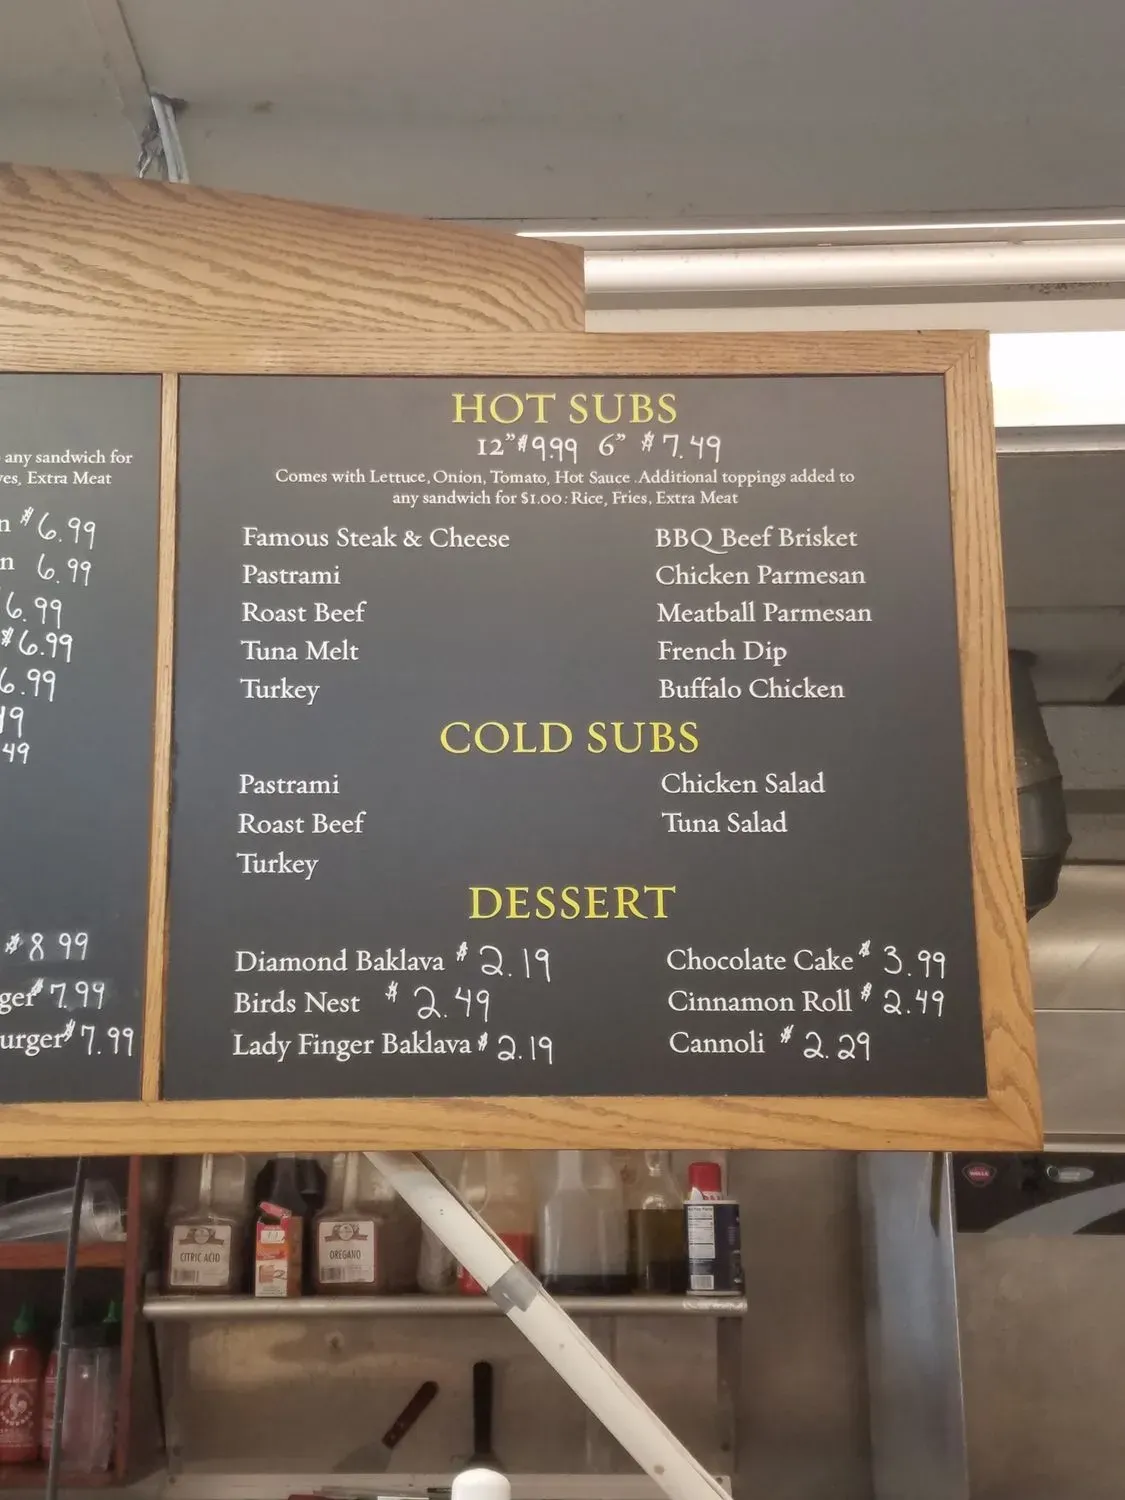 any sandwich for
Extra Meat
$6.99
6.99
6.99
$6.99
6.99
49
$8.99
$7.99
$7.99
HOT SUBS
12" $9.99 6" $7.49
Comes with Lettuce, Onion, Tomato, Hot Sauce .Additional toppings added to
any sandwich for $1.00: Rice, Fries, Extra Meat
Famous Steak & Cheese
BBQ Beef Brisket
Pastrami
Chicken Parmesan
Roast Beef
Meatball Parmesan
Tuna Melt
French Dip
Turkey
Buffalo Chicken
COLD SUBS
Pastrami
Chicken Salad
Roast Beef
Tuna Salad
Turkey
DESSERT
Diamond Baklava $2.19
Chocolate Cake $3.99
Birds Nest $2.49
Cinnamon Roll $2.49
Lady Finger Baklava $2.19
Cannoli $2.29
CITRIC ACID
OREGANO
WELLS